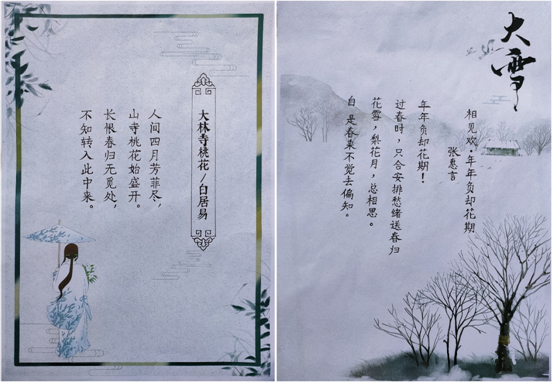 大林寺桃花/白居易
人间四月芳菲尽，
山寺桃花始盛开。
长恨春归无觅处，
不知转入此中来。
大雪
相见欢·年年负却花期
张惠言
年年负却花期！
过春时，只合安排愁绪送春归
花雪，梨花月，总相思。
自是春来不觉去偏知。